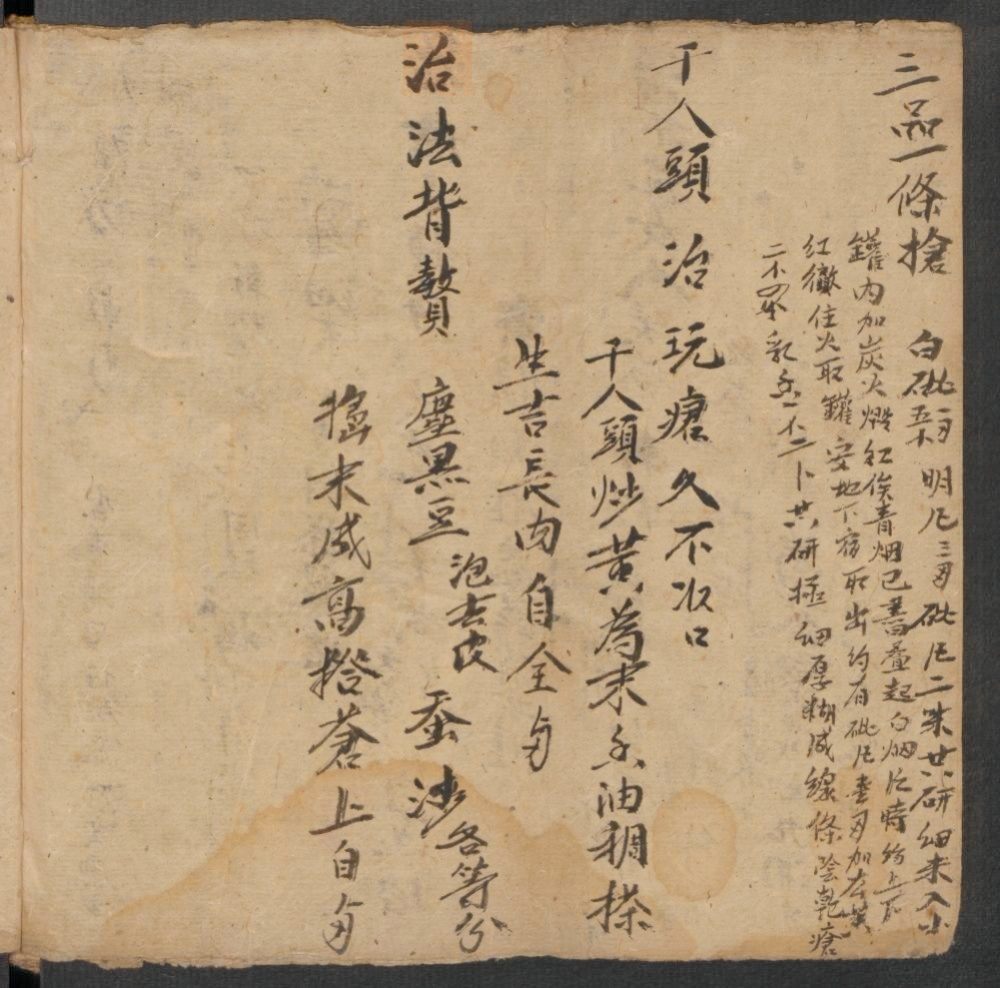 三品一條搶 白砒一兩五 明凡三兩 砒凡二味共研細末入小
罐內加炭火煅紅俟青烟已盡叠起白烟片時約上下
紅徹住火取罐安地下宿取出約有砒凡壹兩加
二不 乳 不二卜共研極細厚糊成線條陰乾瘡
千人頭 治玩瘡久不收口
千人頭炒黄為末 油稠搽
生吉長肉自全
治法背贅 塵黑豆 泡去皮 蚕沙 各等分
末成高 蒼上自